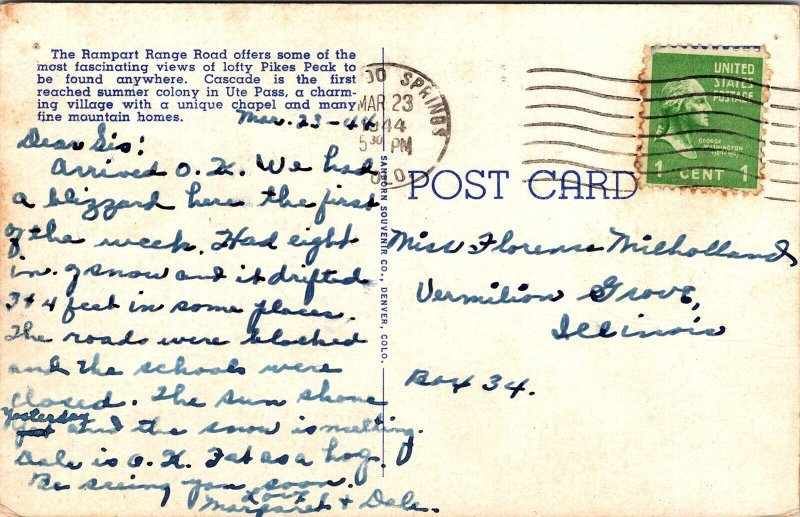 The Rampart Range Road offers some of the
most fascinating views of lofty Pikes Peak to
be found anywhere. Cascade is the first
reached summer colony in Ute Pass, a charm-
ing village with a unique chapel and many
fine mountain homes.
Mar. 23-44
Dear Sis!
Arrived O.K. We had
a blizzard here the first
of the week. Had eight
in. of snow and it drifted
3+4 feet in some places.
The roads were blocked
and the schools were
closed. The sun shone
Yesterday
and the snow is melting.
Dale is O.K. Fat as a hog.
Be seeing you soon.
Love
Margaret + Dale.
SANBORN SOUVENIR CO., DENVER, COLO.
DO SPRINGS
MAR 23
1944
530 PM
POST CARD
UNITED
STATES
POSTAGE
GEORGE
WASHINGTON
1 CENT 1
Miss Florense Milholland
Vermilion Grove,
Illinois
Box 34.